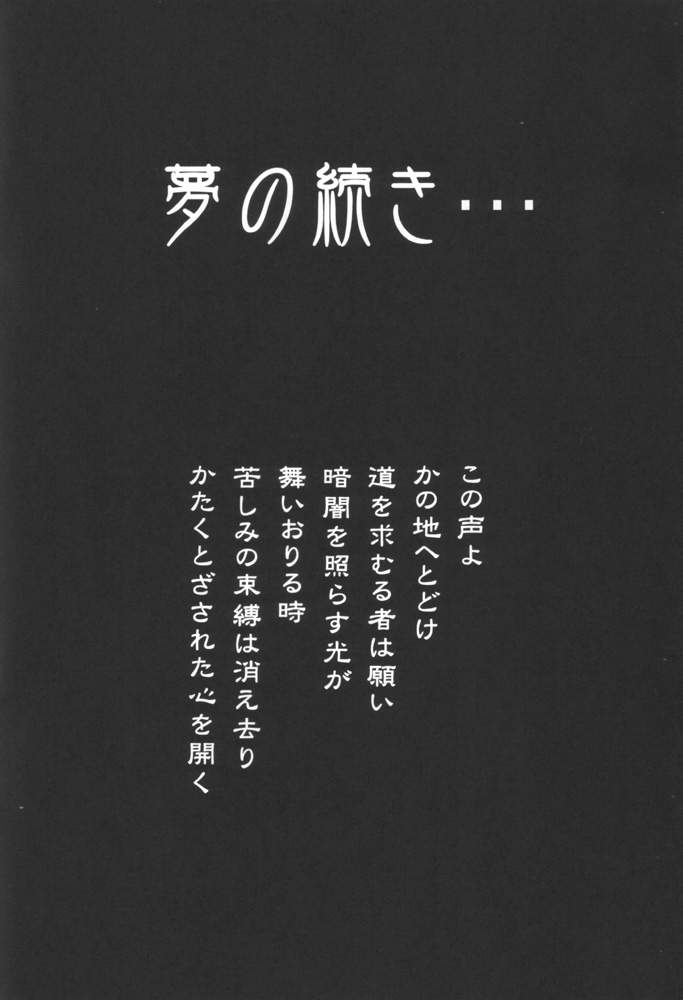 夢の続き・・・
この声よ
かの地へとどけ
道を求むる者は願い
暗闇を照らす光が
舞いおりる時
苦しみの束縛は消え去り
かたくとざされた心を開く